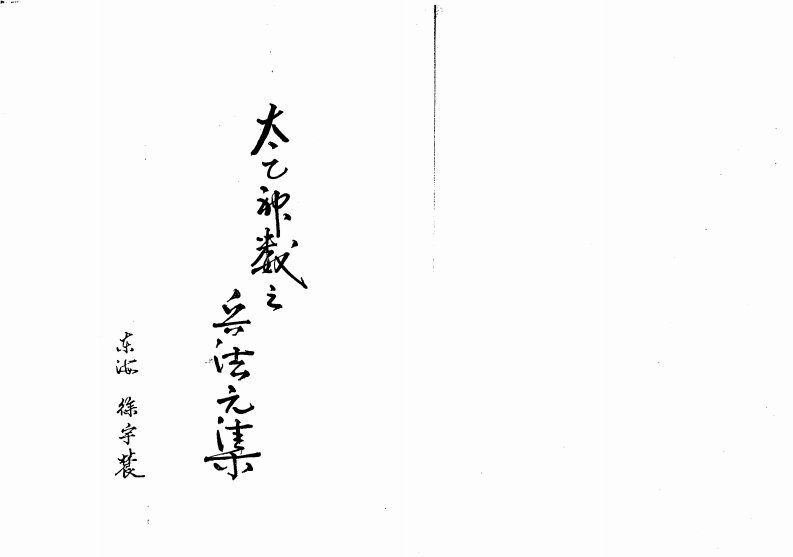 太乙神数之
兵法元集
东海 徐宇辳